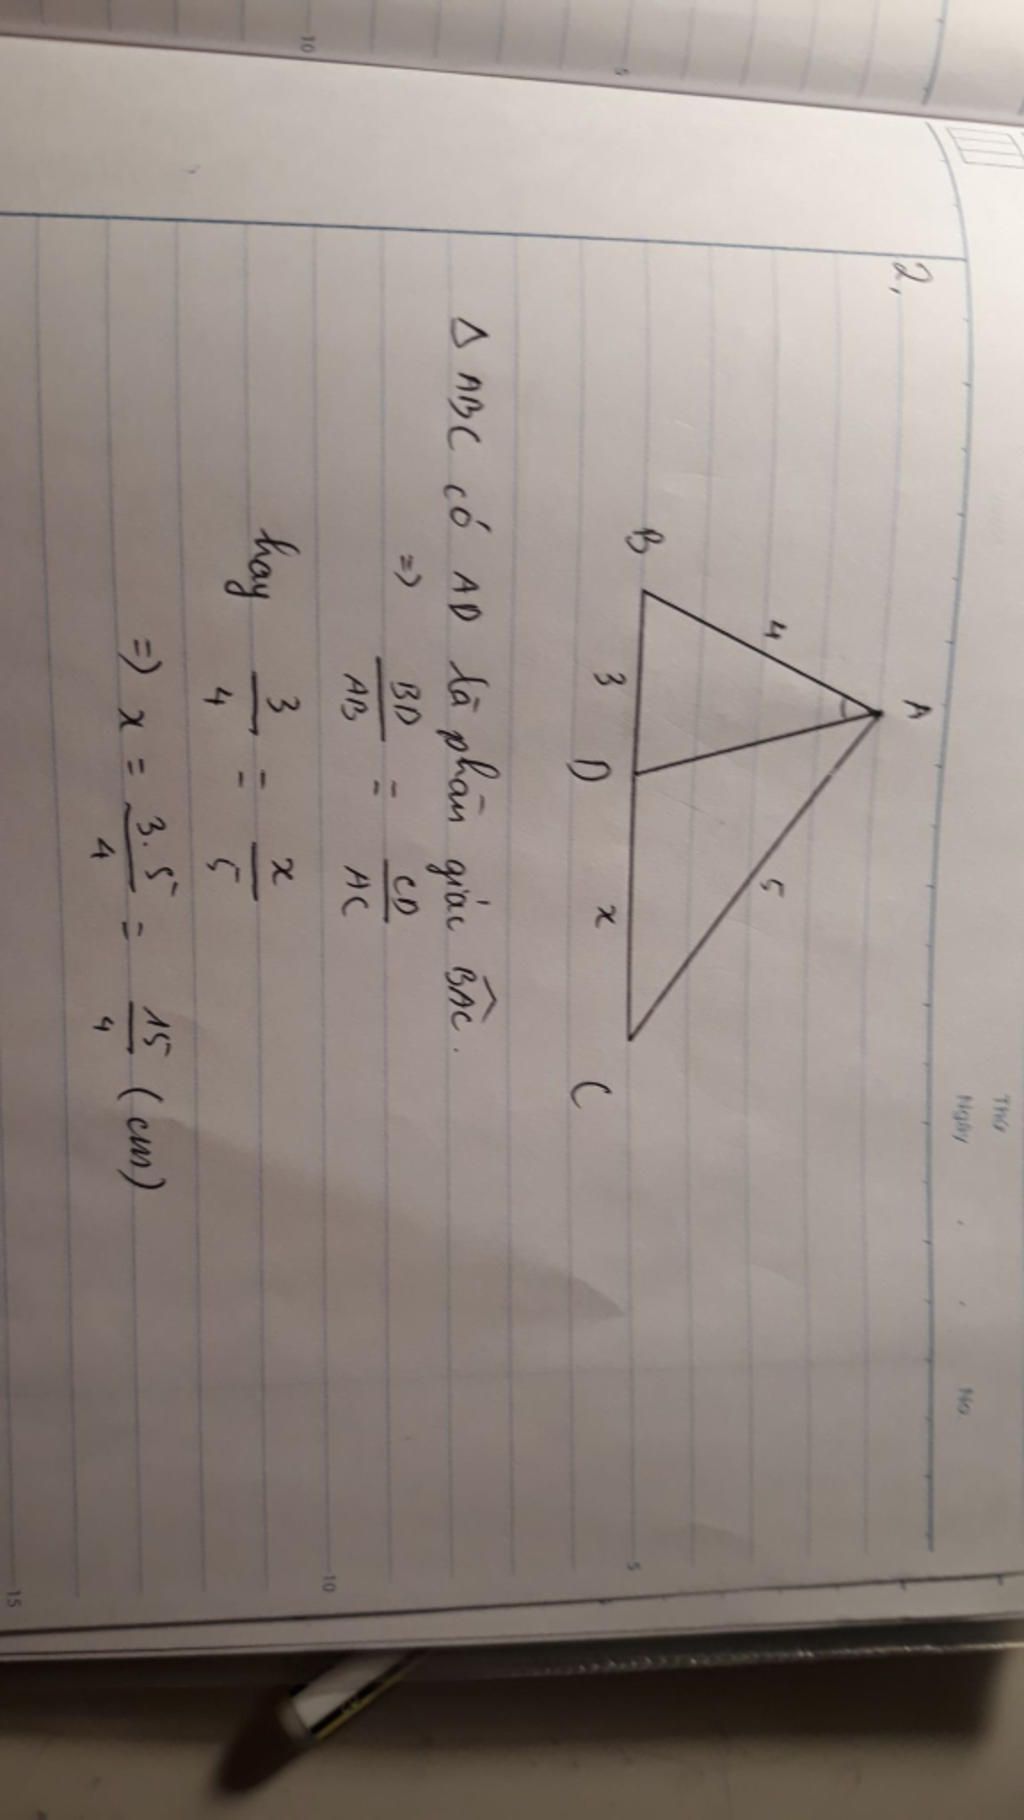 Thứ
Ngày
No.
2,
A
4
5
B
3
D
x
C
Δ ABC có AD là phân giác B̂AC.
=> BD/AB = CD/AC
hay 3/4 = x/5
=> x = 3.5/4 = 15/4 (cm)
5
10
15
5
10